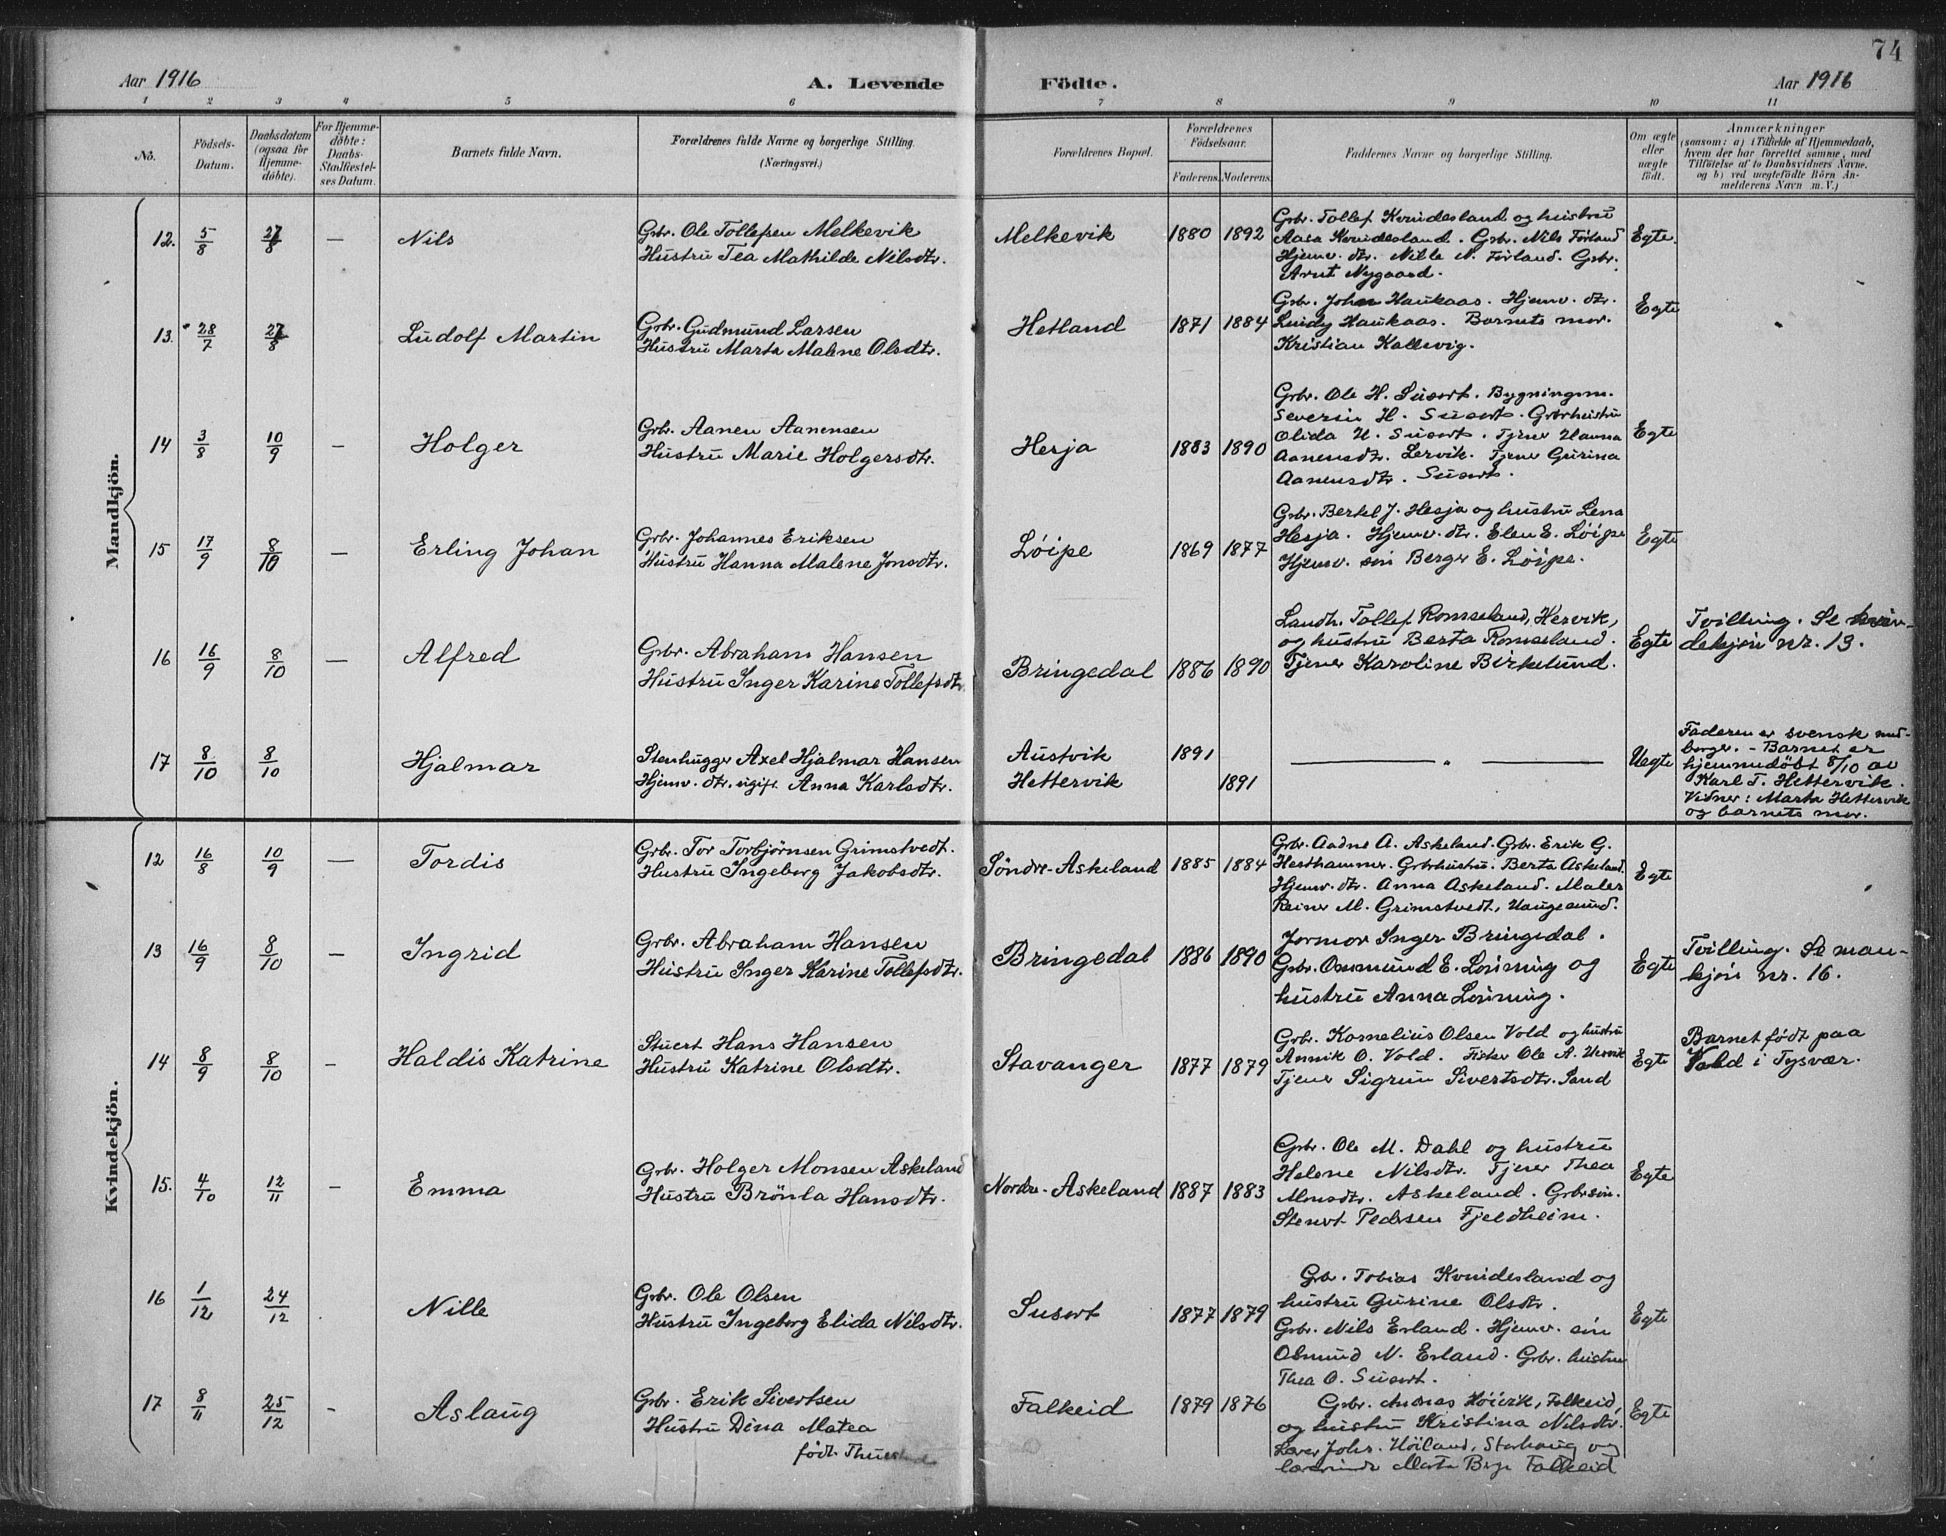 74
Aar 1916 A. Levende Födte. Aar 1916
1 2 3 4 5 6 7 8 9 10 11
No.
Födsels-
Datum.
Daabsdatum
(ogsaa for
Hjemme-
döbte).
For Hjemme-
döbte:
Daabs-
Stadfæstel-
ses Datum.
Barnets fulde Navn.
Forældrenes fulde Navne og borgerlige Stilling.
(Næringsvei.)
Forældrenes Bopæl.
Forældrenes
Födselsaar.
Faderens. Moderens.
Faddernes Navne og borgerlige Stilling.
Om ægte
eller
uægte
födt.
Anmærkninger
(saasom: a) i Tilfælde af Hjemmedaab,
hvem der har forrettet samme, med
Tilföielse af to Daabsvidners Navne.
og b) ved uægtefödte Börn An-
melderens Navn m. V.)
Mandkjön.
12. 5/8 27/8 — Nils
Grbr. Ole Tollefsen Melkevik
Hustru Tea Mathilde Nilsdtr.
Melkevik 1880 1892
Grbr. Tollef Kvindesland og hustru
Aasa Kvindesland. Grbr. Nils Førland
Hjemv. dtr. Nille N. Førland. Grbr.
Arnt Nygaard.
Egte.
13. 28/7 27/8 Ludolf Martin
Grbr. Gudmund Larsen
Hustru Marta Malene Olsdtr.
Hetland 1871 1884
Grbr. John Haukaas. Hjemv. dtr.
Haukaas. Barnets mor.
Kristian Kallevig.
Egte
14 3/8 10/9 — Holger
Grbr. Aanen Aanensen
Hustru Marie Holgersdtr.
Hesja 1883 1890
Grbr. Ole H. Susort. Bygningsm.
Severin H. Susort. Grbrhustru
Olida H. Susort. Tjener Hanna
Aanensdtr. Lervik. Tjener Gurina
Aanensdtr. Susort.
Egte
15 17/9 8/10 — Erling Johan
Grbr. Johannes Eriksen
Hustru Hanna Malene Jonsdtr.
Løipe 1869 1877
Grbr. Bertel J. Hesja og hustru Lena
Hesja. Hjemv. dtr. Elen E. Løipe
Hjemv. søn Berger E. Løipe.
Egte
16 16/9 8/10 — Alfred
Grbr. Abraham Hansen
Hustru Inger Karine Tollefsdtr.
Bringedal 1886 1890
Landh. Tollef Romseland, Hervik,
og hustru Berta Romseland.
Tjener Karoline Birkelund.
Egte
Tvilling. Se kvin-
dekjön nr. 13.
17 8/10 8/10 Hjalmar
Stenhugger Axel Hjalmar Hansen
Hjemv. dtr. ugift Anna Karlsdtr.
Austvik 1891
Hettervik 1891
— " —
Uegte
Faderen er svensk und-
borger. - Barnet er
hjemmedøbt 8/10 av
Karl T. Hettervik.
Vidner: Marta Hettervik
og barnets mor.
Kvindekjön.
12 16/8 10/9 — Tordis
Grbr. Tor Torbjørnsen Grimstvedt.
Hustru Ingeborg Jakobsdtr.
Søndre-Askeland 1885 1884
Grbr. Aadne A. Askeland. Grbr. Erik G.
Hesthammer. Grbrhustru. Berta Askeland.
Hjemv. dtr. Anna Askeland. Maler
Reiner M. Grimstvedt, Haugesund.
Egte
13 16/9 8/10 — Ingrid
Grbr. Abraham Hansen
Hustru Inger Karine Tollefsdtr.
Bringedal 1886 1890
Jormor Inger Bringedal.
Grbr. Osmund E. Løining og
hustru Anna Løining.
Egte
Tvilling. Se man-
kjön nr. 16.
14 8/9 8/10 - Haldis Katrine
Stuert Hans Hansen
Hustru Katrine Olsdtr.
Stavanger 1877 1879
Grbr. Kornelius Olsen Vold og hustru
Annik O. Vold. Fisker Ole A. Hervik
Tjener Sigrun Sivertsdtr. Sand
Egte
Barnet født paa
Vold i Tysvær.
15. 4/10 12/11 - Emma
Grbr. Holger Monsen Askeland
Hustru Brønla Hansdtr.
Nordre-Askeland 1887 1883
Grbr. Ole M. Dahl og hustru
Helene Nilsdtr. Tjener Thea
Monsdtr. Askeland. Grbrsøn.
Pedersen Fjeldheim.
Egte
16 1/12 24/12 Nille
Grbr. Ole Olsen
Hustru Ingeborg Elida Nilsdtr.
Susort 1877 1879
Grbr. Tobias Kvindesland og
hustru Gurine Olsdtr.
Grbr. Nils Erland. Hjemv. søn
Osmund N. Erland. Grbr. hustru
Thea O. Susort.
Egte
17 8/11 25/12 - Aslaug
Grbr. Erik Sivertsen
Hustru Dina Matea
født.
Falkeid 1879 1876
Grbr. Andreas Høivik, Falkeid,
og hustru Kristina Nilsdtr.
Lærer Johs. Høiland, Storhaug og
lærerinde Marta Falkeid
Egte